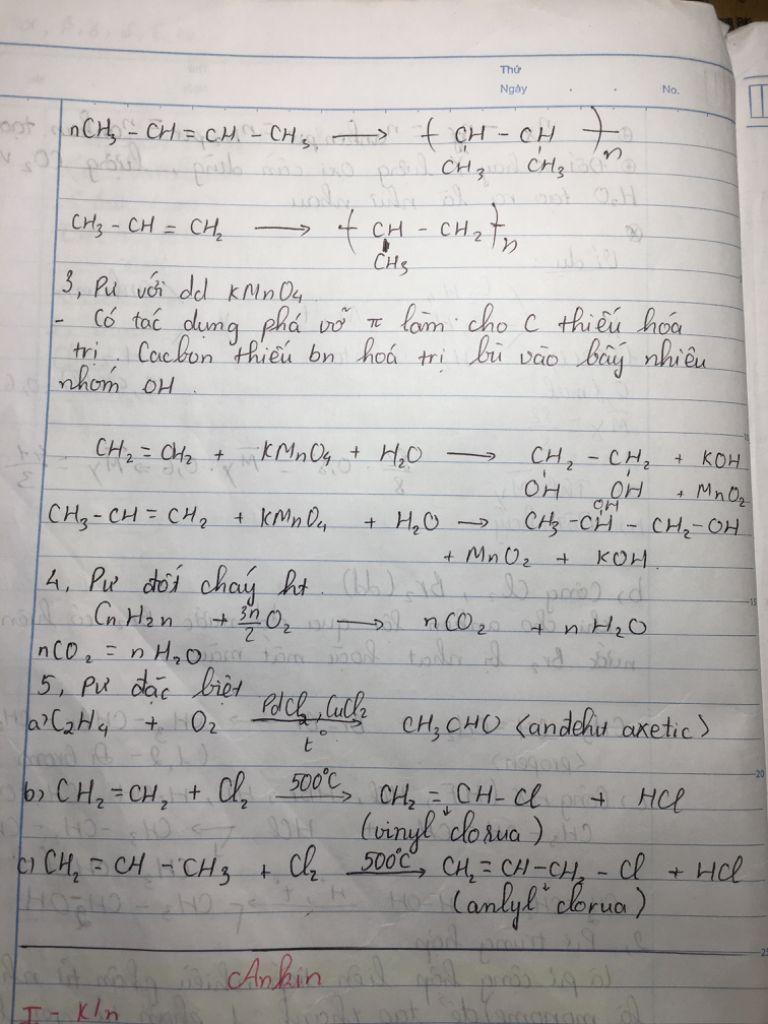 Thứ
Ngày . . No.
nCH₃ - CH = CH - CH₃ ⟶ ( CH - CH )n
CH₃ CH₃
CH₃ - CH = CH₂ ⟶ ( CH - CH₂ )n
CH₃
3, Pư với dd KMnO₄
- Có tác dụng phá vỡ π làm cho C thiếu hóa
trị. Cacbon thiếu bn hoá trị bù vào bấy nhiêu
nhóm OH.
CH₂ = CH₂ + KMnO₄ + H₂O ⟶ CH₂ - CH₂ + KOH
OH OH + MnO₂
OH
CH₃-CH = CH₂ + KMnO₄ + H₂O ⟶ CH₃-CH - CH₂-OH
+ MnO₂ + KOH.
4, Pư đốt cháy ht.
CnH2n + 3n/2 O₂ ⟶ nCO₂ + n H₂O
nCO₂ = n H₂O
5, Pư đặc biệt
a) C₂H₄ + O₂ PdCl₂, CuCl₂ ⟶ t° CH₃CHO (andehit axetic)
b) CH₂=CH₂ + Cl₂ 500°C ⟶ CH₂ = CH-Cl + HCl
(vinyl clorua)
c) CH₂ = CH - CH₃ + Cl₂ 500°C ⟶ CH₂=CH-CH₂ - Cl + HCl
(anlyl clorua)
Ankin
I - K/n